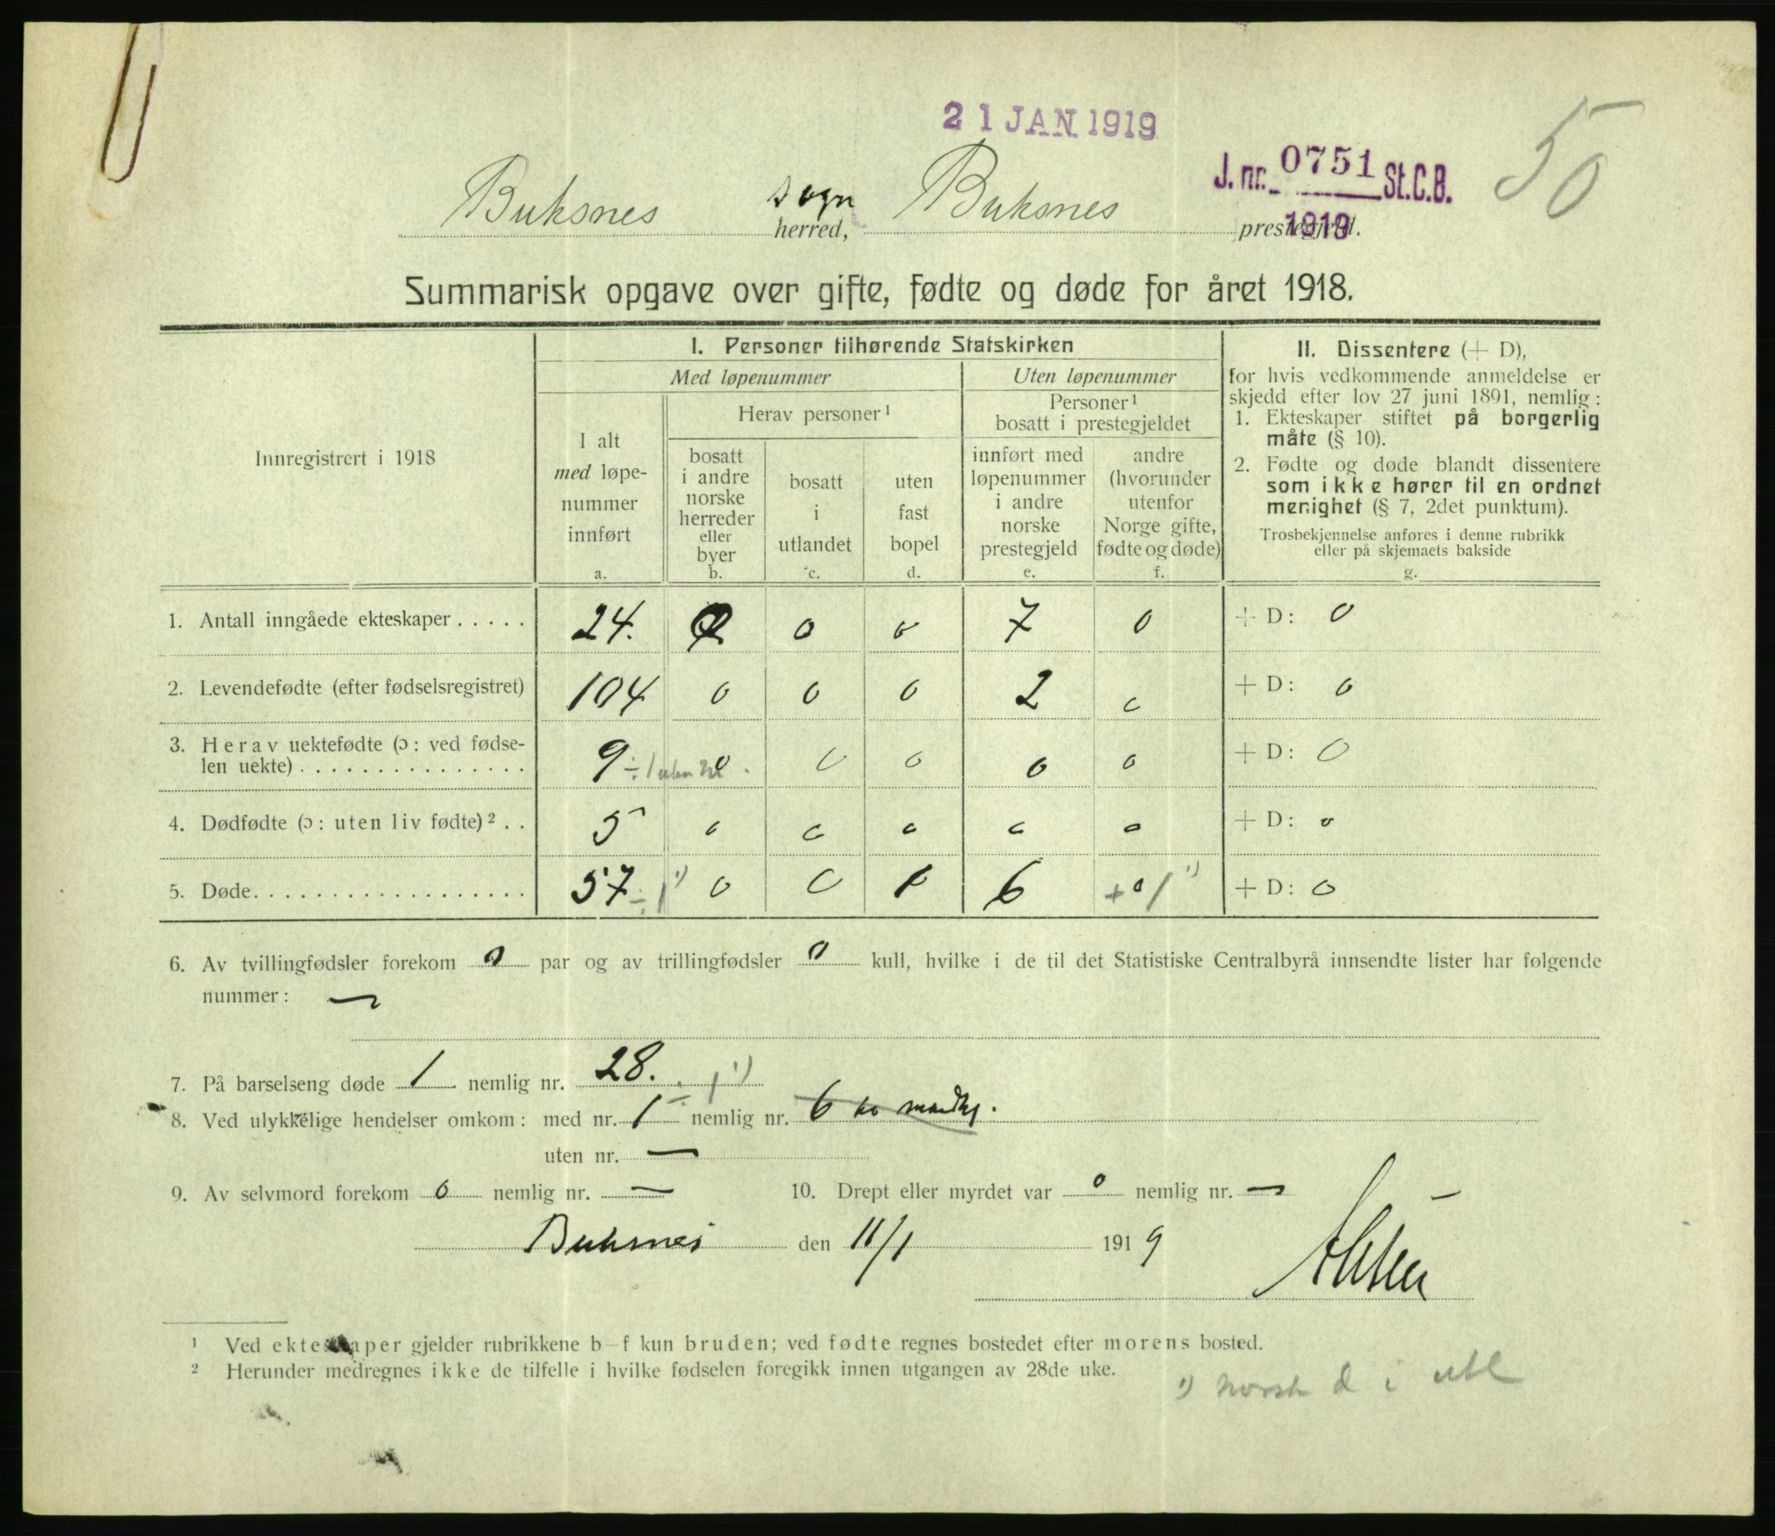 21 JAN 1919
J. nr. 0751 St.C.B.
1919
50
Buksnes sogn herred, Buksnes prestegjeld.
Summarisk opgave over gifte, fødte og døde for året 1918.
Innregistrert i 1918
I. Personer tilhørende Statskirken
Med løpenummer
Uten løpenummer
I alt
med løpe-
nummer
innført
a.
Herav personer¹
bosatt
i andre
norske
herreder
eller
byer
b.
bosatt
i
utlandet
c.
uten
fast
bopel
d.
Personer¹
bosatt i prestegjeldet
innført med
løpenummer
i andre
norske
prestegjeld
e.
andre
(hvorunder
utenfor
Norge gifte,
fødte og døde)
f.
II. Dissentere (+ D),
for hvis vedkommende anmeldelse er
skjedd efter lov 27 juni 1891, nemlig:
1. Ekteskaper stiftet på borgerlig
måte (§ 10).
2. Fødte og døde blandt dissentere
som ikke hører til en ordnet
menighet (§ 7, 2det punktum).
Trosbekjennelse anføres i denne rubrikk
eller på skjemaets bakside
g.
1. Antall inngåede ekteskaper..... 24. 0 0 7 0 + D: 0
2. Levendefødte (efter fødselsregistret) 104 0 0 0 2 0 + D: 0
3. Herav uektefødte (ɔ: ved fødse-
len uekte)............... 9 ÷ 1 0 0 0 0 0 + D: 0
4. Dødfødte (ɔ: uten liv fødte)².. 5 0 0 0 0 0 + D: 0
5. Døde.................. 57 ÷ 1 ¹) 0 0 6 + 0 1 ¹) + D: 0
6. Av tvillingfødsler forekom 0 par og av trillingfødsler 0 kull, hvilke i de til det Statistiske Centralbyrå innsendte lister har følgende
nummer: —
7. På barselseng døde 1 nemlig nr. 28.
8. Ved ulykkelige hendelser omkom: med nr. 1 nemlig nr. 6
uten nr. —
9. Av selvmord forekom 0 nemlig nr. — 10. Drept eller myrdet var 0 nemlig nr. —
Buksnes den 11/1 1919
¹ Ved ekteskaper gjelder rubrikkene b–f kun bruden; ved fødte regnes bostedet efter morens bosted.
² Herunder medregnes ikke de tilfelle i hvilke fødselen foregikk innen utgangen av 28de uke.
¹) norsk d i utl